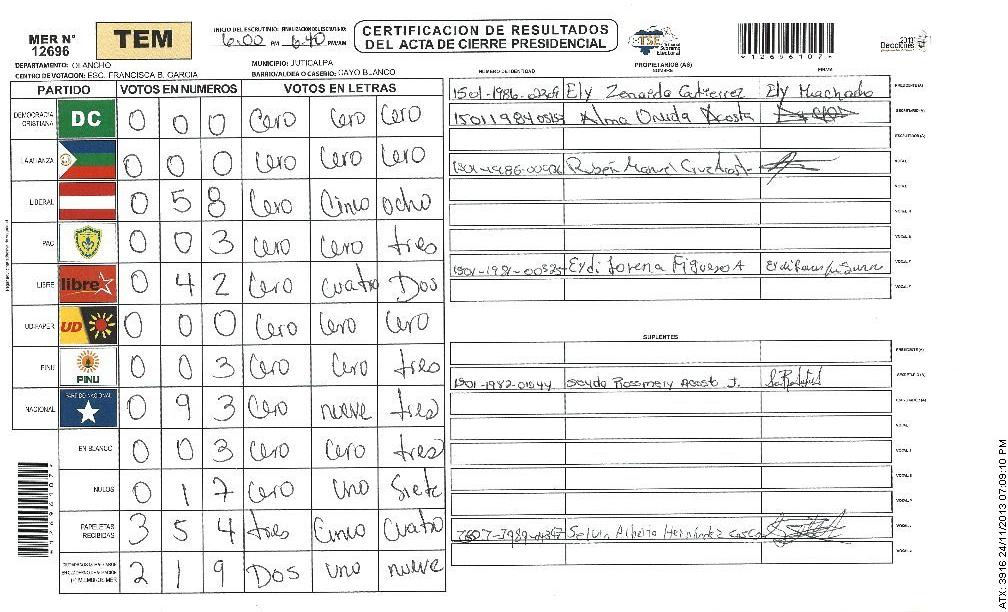 MER N° 12696
TEM
INICIO DEL ESCRUTINIO: 6:00 PM FINALIZACION DEL ESCRUTINIO: 6:40 PM/AM
CERTIFICACION DE RESULTADOS DEL ACTA DE CIERRE PRESIDENCIAL
TSE Tribunal Supremo Electoral
*12696107*
DEPARTAMENTO: OLANCHO
MUNICIPIO: JUTICALPA
CENTRO DE VOTACION: ESC. FRANCISCA B. GARCIA
BARRIO/ALDEA O CASERIO: CAYO BLANCO
PARTIDO VOTOS EN NUMEROS VOTOS EN LETRAS
DEMOCRACIA CRISTIANA DC 0 0 0 Cero Cero Cero
LA ALIANZA 0 0 0 Cero Cero Cero
LIBERAL 0 5 8 Cero Cinco ocho
PAC 0 0 3 Cero Cero tres
LIBRE libre 0 4 2 Cero cuatro Dos
UD-FAPER UD 0 0 0 Cero Cero Cero
PINU PINU 0 0 3 Cero Cero tres
NACIONAL PARTIDO NACIONAL 0 9 3 Cero nueve tres
EN BLANCO 0 0 3 Cero Cero tres
NULOS 0 1 7 Cero uno Siete
PAPELETAS RECIBIDAS 3 5 4 tres Cinco Cuatro
2 1 9 Dos uno nueve
PROPIETARIOS (AS)
NUMERO DE IDENTIDAD NOMBRE FIRMA
Ely Zenaida Gutierrez Ely Muachado PRESIDENTE(A)
Alma Oneida Acosta SECRETARIO(A)
ESCRUTADOR(A)
Rubén Manuel VOCAL
Eydi Lorena Figueroa A
SUPLENTES
PRESIDENTE(A)
1501-1982-01544 Rossmery Acosta J. SECRETARIO(A)
ESCRUTADOR(A)
Selvin Alberto Hernández
ATX: 3916 24/11/2013 07:09:10 PM